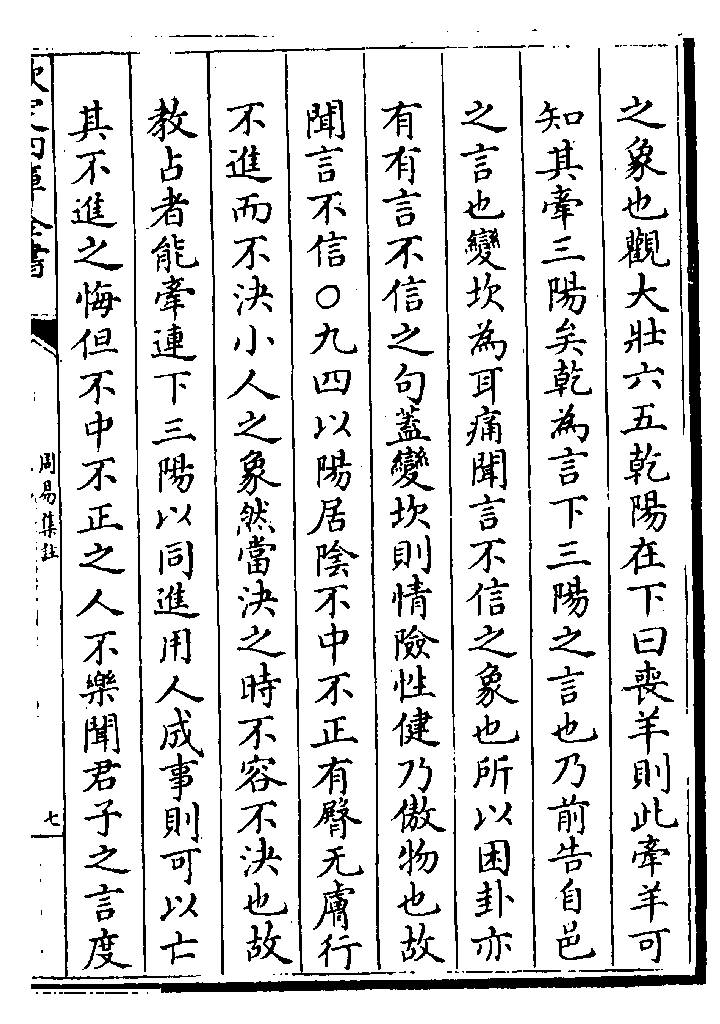 之象也觀大壯六五乾陽在下曰喪羊則此牽羊可
知其牽三陽矣乾為言下三陽之言也乃前告自邑
之言也變坎為耳痛聞言不信之象也所以困卦亦
有有言不信之句蓋變坎則情險性健乃傲物也故
聞言不信○九四以陽居陰不中不正有臀无膚行
不進而不決小人之象然當決之時不容不決也故
教占者能牽連下三陽以同進用人成事則可以亡
其不進之悔但不中不正之人不樂聞君子之言度
欽定四庫全書
周易集註
七